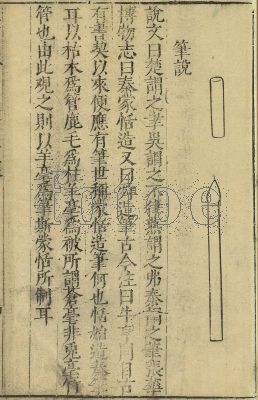 筆說
說文曰楚謂之聿吳謂之不律燕謂之弗秦謂之筆
博物志曰蒙恬造又曰舜造筆古今注曰牛亨問曰古
有書契以來便應有筆世稱蒙恬造筆何也恬始造秦筆
耳以枯木為管鹿毛為柱羊毫為被所謂蒼毫非兎毫竹
管也由此觀之則以羊毫為筆斯蒙恬所制耳